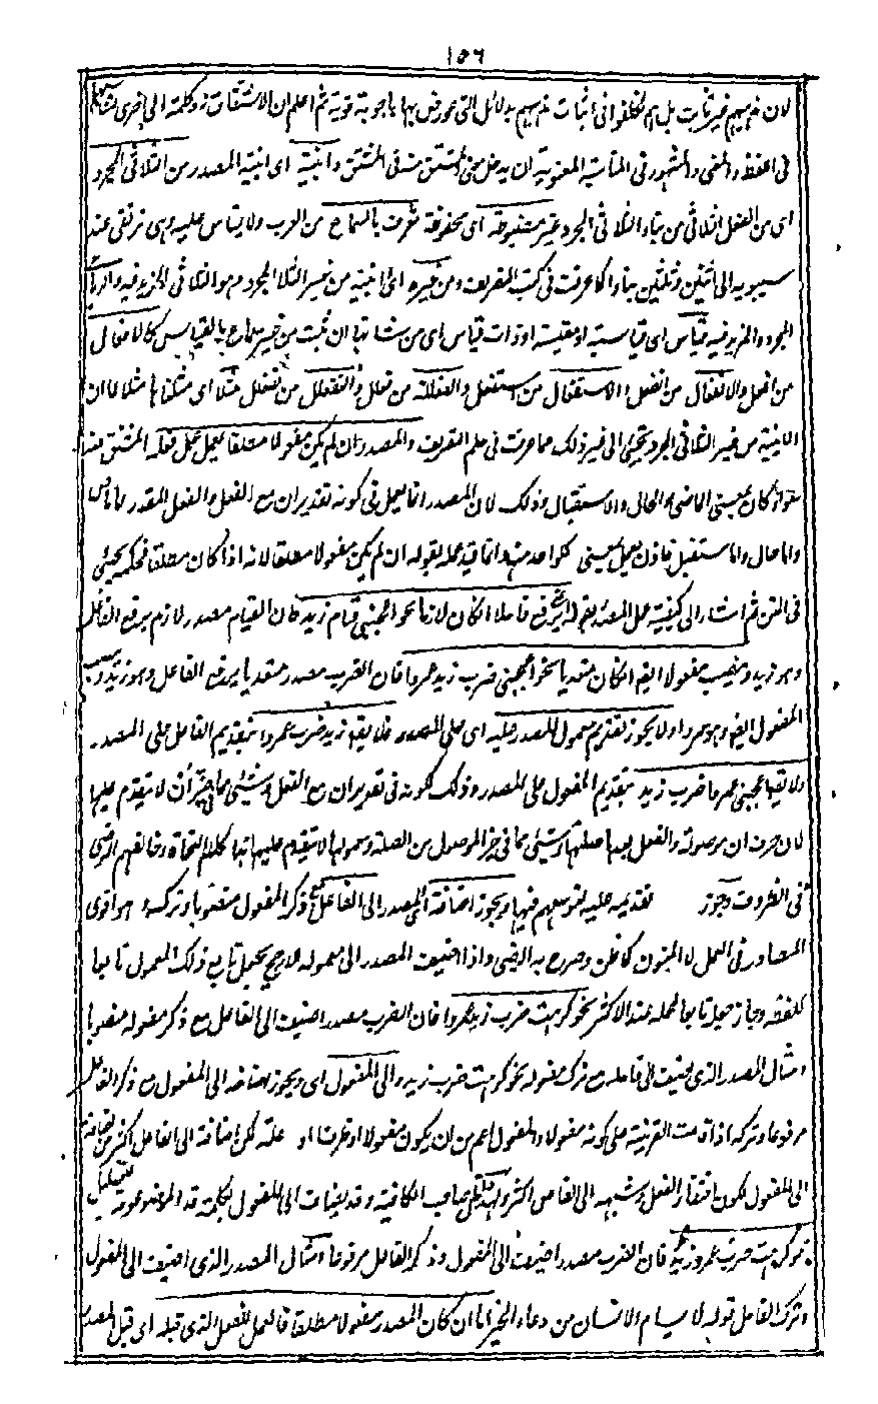 ١٥٦
لان مذهبهم غير ثابت بل هم تخلفوا فى اثبات مذهبهم بدلائل التى عورض بها باجوبة قوية ثم اعلم ان الاشتقاق رد كلمة الى اخرى
فى اللفظ والمعنى والمشهور فى المناسبة المعنوية ان يدخل معنى المشتق منه فى المشتق وابنية اى ابنية المصدر من الثلاثى المجرد
اى من الفعل الثلاثى من بناء الثلاثى المجرد غير مضبوطة اى محفوظة تعرف بالسماع من العرب ولا يقاس عليه وهى ترتقى عند
سيبويه الى اثنين وثلثين بناء كما عرفت فى كتب التصريف ومن غيره اى ابنية من غير الثلاثى المجرد هو الثلاثى المزيد فيه والرباعى
المجرد والمزيد فيه قياس اى قياسية او مقيسة او ذات قياس اى من شانها ان تثبت من غير سماع بالقياس كالافعال
من افعل والانفعال من انفعل والاستفعال من استفعل والفعللة من فعلل والتفعلل من تفعلل مثلا اى مثلنا بها مثلا لما ان
الابنية من غير الثلاثى المجرد تجيئ الى غير ذلك مما عرفت فى علم التصريف والمصدر ان لم يكن مفعولا مطلقا يعمل عمل فعله المشتق منه
سواء كان بمعنى الماضى والحال والاستقبال وذلك لان المصدر انما يعمل فى كونه تقدير ان مع الفعل والفعل المقدر اما ماض
واما حال واما مستقبل فاذن يعمل بمعنى كل واحد منها وانما قيد عمله بقوله ان لم يكن مفعولا مطلقا لانه اذا كان مطلقا فحكمه يجيئ
فى المتن ثم اشار الى كيفية عمل المصدر بقوله اى يرفع فاعلا ان كان لازما نحو اعجبنى قيام زيد فان القيام مصدر لازم يرفع الفاعل
وهو زيد وينصب مفعولا ايضا ان كان متعديا نحو اعجبنى ضرب زيد عمروا فان الضرب مصدر متعد يا يرفع الفاعل وهو زيد وينصب
المفعول ايضا وهو عمروا ولا يجوز تقديم معمول المصدر عليه اى على المصدر فلا يقه زيد ضرب عمروا بتقديم الفاعل على المصدر
ولا يقه اعجبنى عمروا ضرب زيد بتقديم المفعول على المصدر وذلك لكونه فى تقدير ان مع الفعل وشيئ مما فى حيز ان لا يتقدم عليها
لان حرف ان موصولة والفعل بعدها صلتها وشيئ مما فى حيز الموصول من الصلة ومعمولها لا يتقدم عليها هذا كلام النحاة وخالفهم الرضى
فى الظروف وجوز تقديمه عليه لتوسعهم فيها ويجوز اضافة اى المصدر الى الفاعل مع ذكر المفعول منصوبا وتركه هو اقوى
المصادر فى العمل لا المنون كما ظن وصرح به الرضى واذا اضيف المصدر الى معموله فلا رجح يجعل تابع ذلك المعمول تابعا
للفظه وجاز جعله تابعا لمحله عند الاكثر نحو كرهت ضرب زيد عمروا فان الضرب مصدر اضيف الى الفاعل مع ذكر مفعوله منصوبا
مثال المصدر الذى يضيف الى فاعله مع ترك مفعوله نحو كرهت ضرب زيد والى المفعول اى ويجوز اضافته الى المفعول مع ذكر الفاعل
مرفوعا وتركه اذا قامت القرينة على كونه مفعولا والمفعول اعم من ان يكون مفعولا او ظرفا او علة لكن اضافة الى الفاعل اكثر من اضافته
الى المفعول لكون افتقار الفعل وشبهه الى الفاعل اكثر صاحب الكافية وقد يضاف الى المفعول بكلمة قد الموضوعة
نحو كرهت ضرب عمرو زيد فان الضرب مصدر اضيف الى المفعول وذكر الفاعل مرفوعا مثال المصدر الذى اضيف الى المفعول
وترك الفاعل قوله لا يسام الانسان من دعاء الخير اما ان كان المصدر مفعولا مطلقا فالعمل للفعل الذى قبله اى قبل المصدر